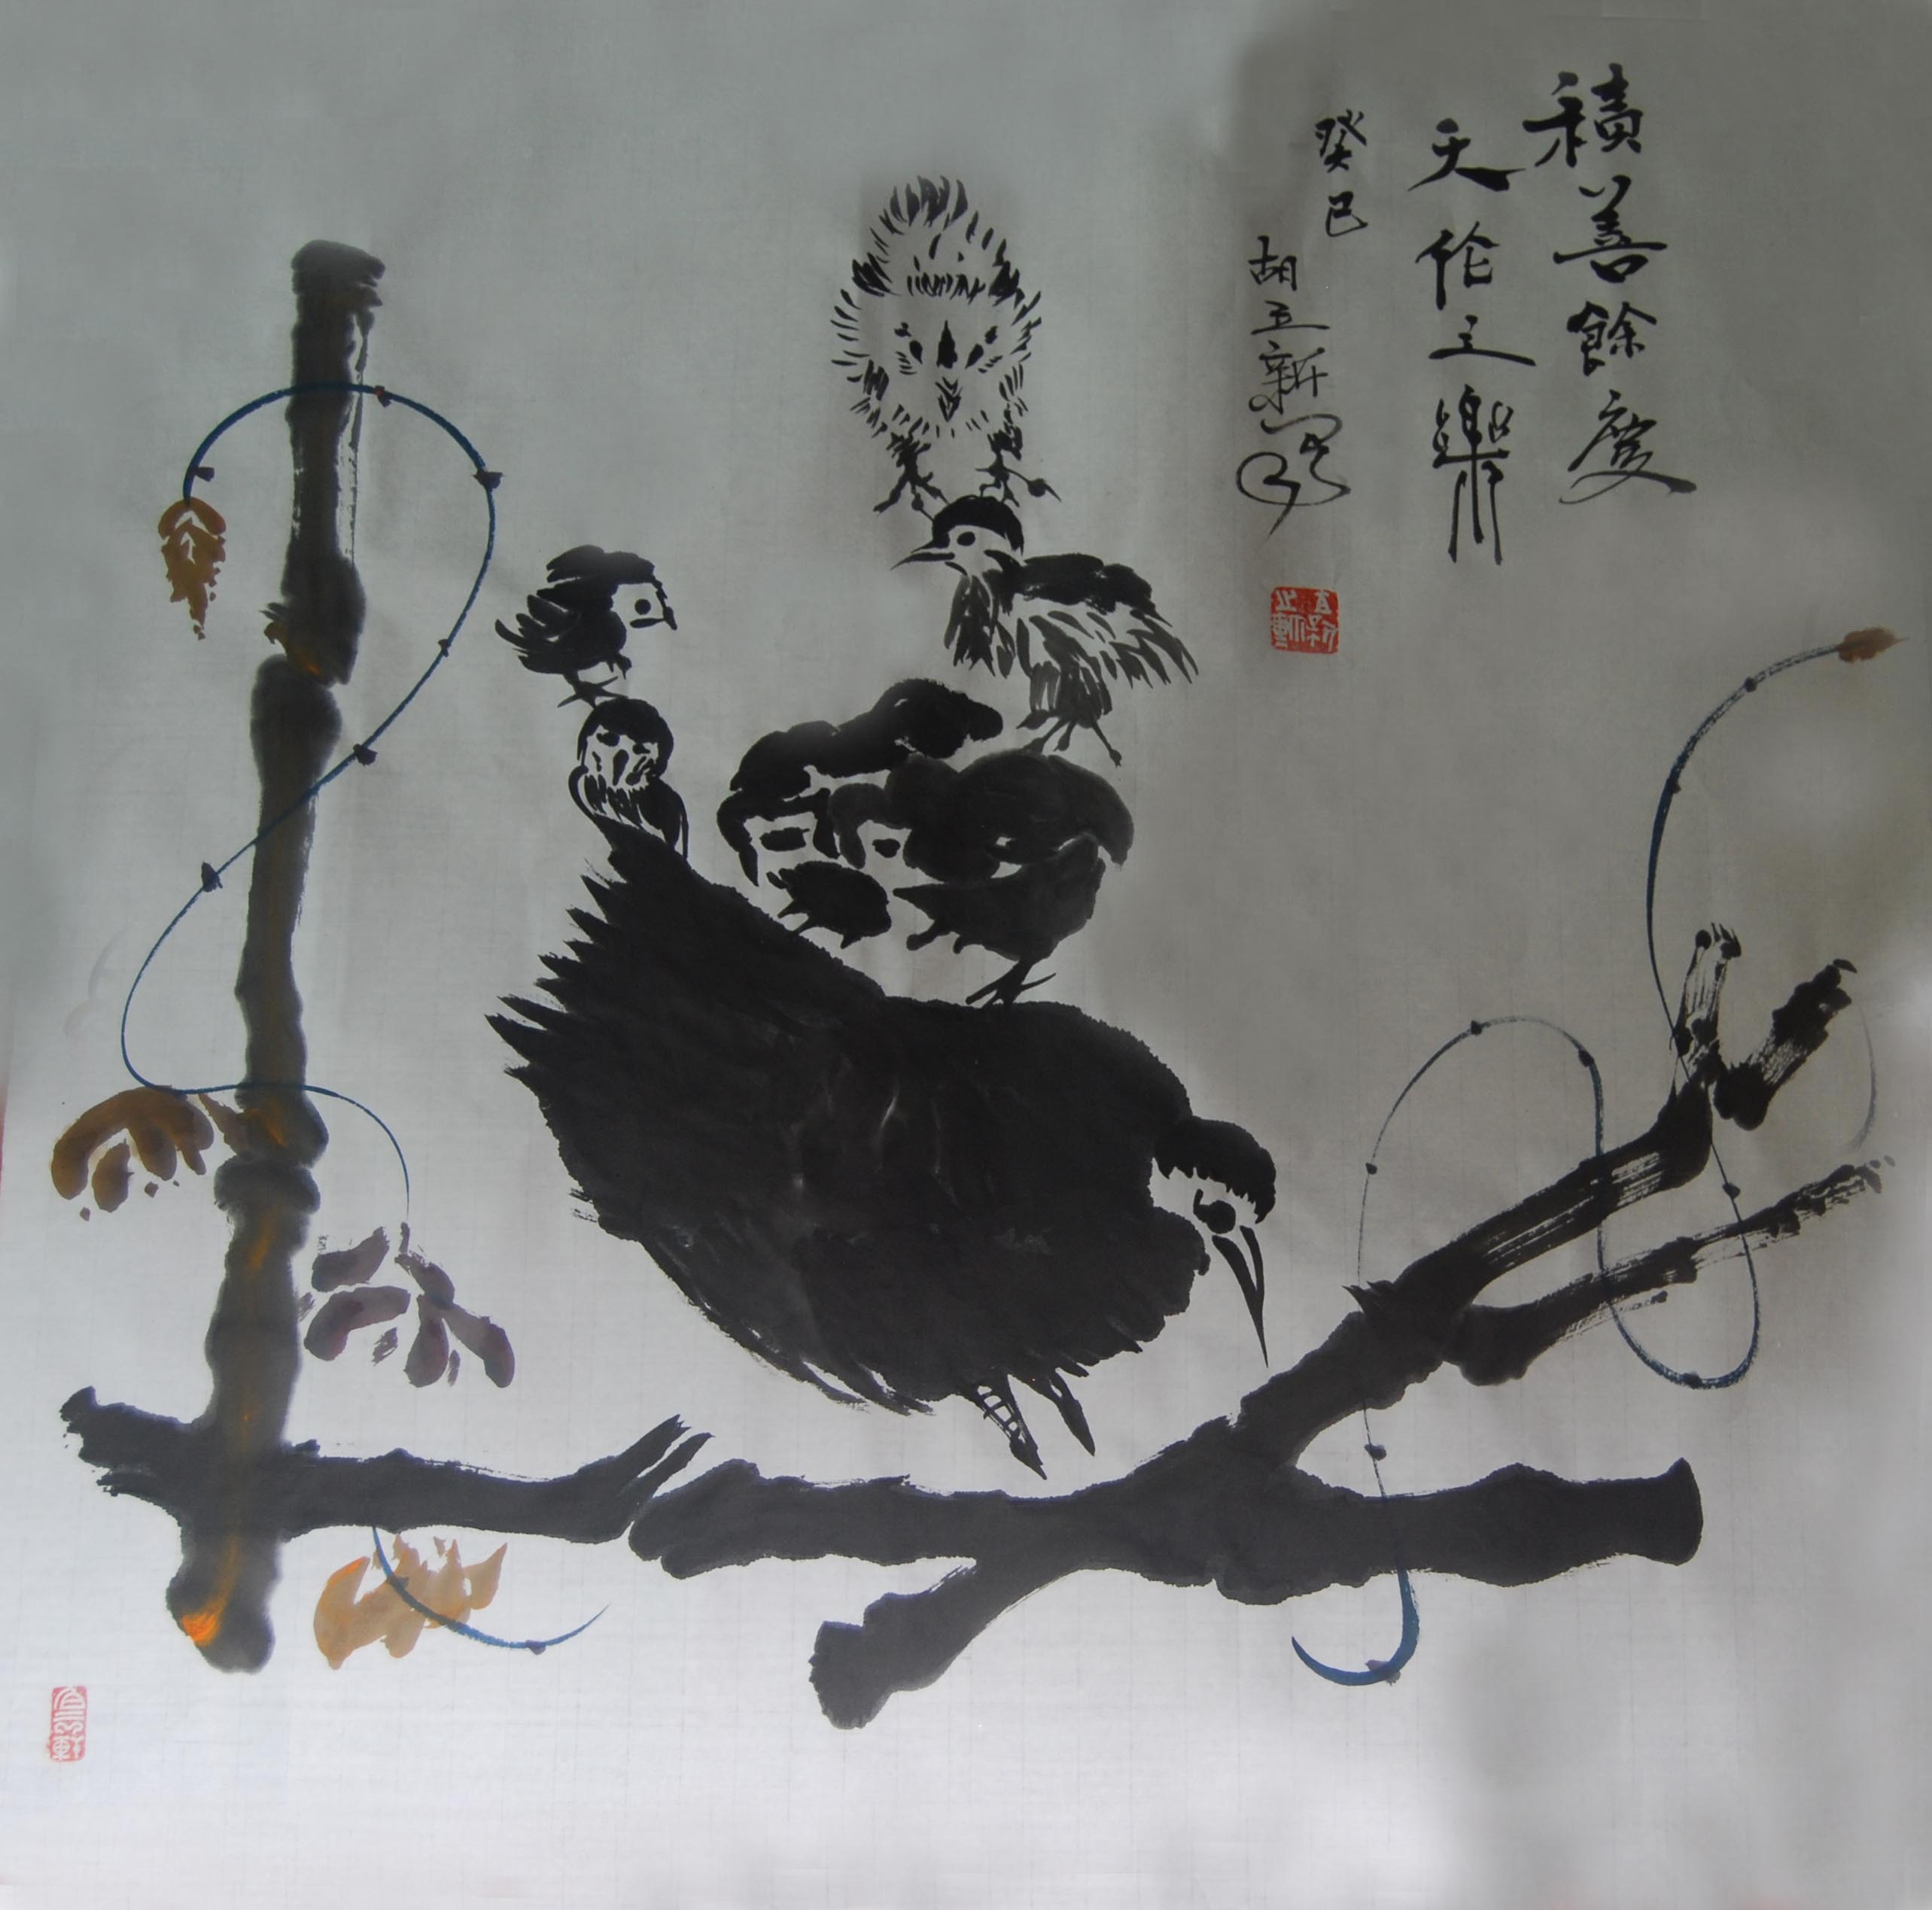 積善餘慶
天伦之樂
癸巳
胡立新